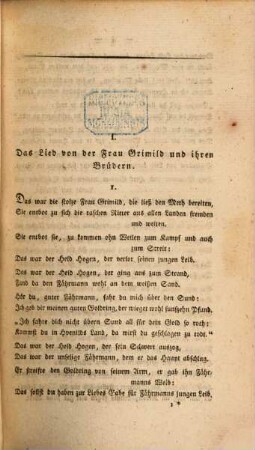 I.
Das Lied von der Frau Grimild und ihren
Brüdern.
1.
Das war die stolze Frau Grimild, die ließ den Meth bereiten,
Sie entbot zu sich die raschen Ritter aus allen Landen fremden
und weiten.
Sie entbot sie, zu kommen ohn Weilen zum Kampf und auch
zum Streit:
Das war der Held Hogen, der verlor seinen jungen Leib.
Das war der Held Hogen, der ging aus zum Strand,
Fand da den Fährmann wohl an dem weißen Sand.
Hör du, guter Fährmann, fahr du mich über den Sund:
Ich geb dir meinen guten Goldring, der wieget wohl funfzehn Pfund.
„Ich fahre dich nicht übern Sund all für dein Gold so roth:
Kommst du in Hvenilds Land, da wirst du geschlagen zu todt.“
Das war der Held Hogen, der sein Schwert auszog,
Das war der unselige Fährmann, dem er das Haupt abschlug.
Er streifte den Goldring von seinem Arm, er gab ihn Fähr-
manns Weib:
Das sollst du haben zur Liebes Gabe für Fährmanns jungen Leib.
1*